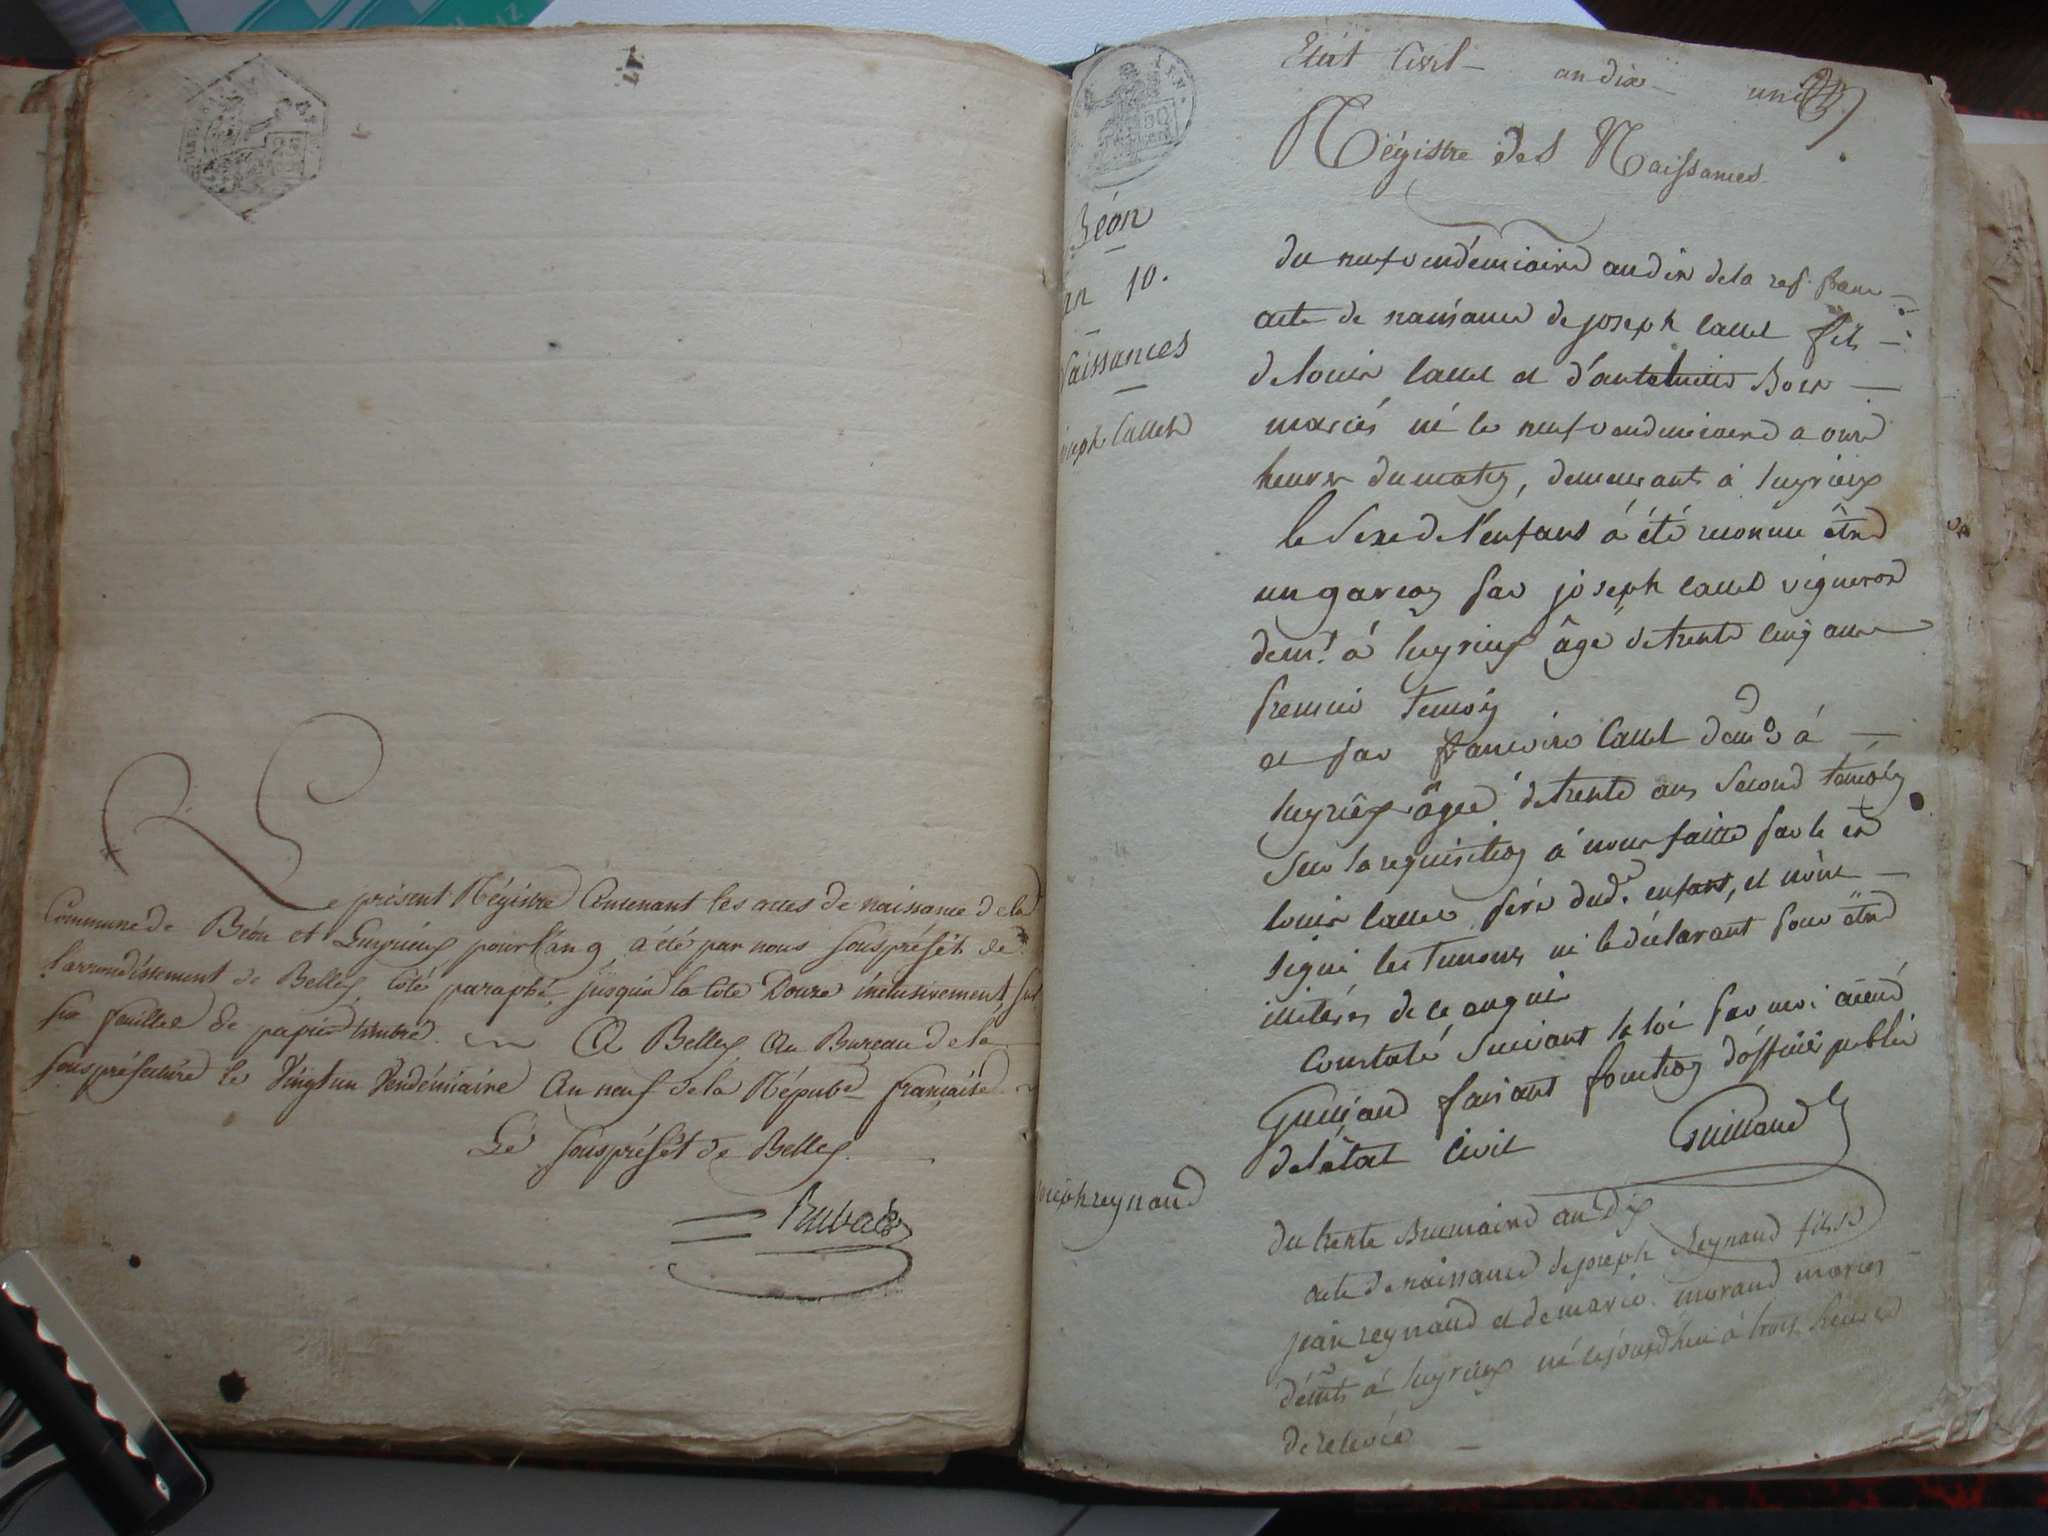 Le présent Régistre Contenant les actes de naissance de la
Commune de Béon et Luyrieux pour l'an 9 a été par nous souspréfét de
l'arrondissement de Belley côté paraphé, jusqu'à la cote Douze inclusivement, sur
six feuilles de papier timbré. A Belley au Bureau de la
souspréfecture le Vingt un Vendémiaire An neuf de la Répub. française
Le souspréfét de Belley
Etat Civil an dix
Régistre des Naissances
Béon
an 10.
Naissances
joseph Callet
du neuf vendémiaire an dix de la rep. franc
acte de naissance de joseph callet fils
de louis callet et d'antelmette Bois
mariés né le neuf vendemiaire a onze
heures du matin, demeurants à luyrieux
le sexe de l'enfant á été reconnu être
un garcon par joseph callet vigneron
dem.t á luyrieux âgé de trente cinq ans
premier temoin
et par francoise Callet dem.e á
luyrieux âgée de trente ans second temoin
sur la requisition á nous faitte par le
louis callet père dud. enfant, et n'ont
signé les temoins ni le déclarant pour être
illiterés de ce enquis
Constaté suivant la loi par moi
Guilland faisant fonction d'officié public
de l'état civil Guilland
joseph reynaud
du trente Brumaire an Dix
acte de naissance de joseph Reynaud fils de
jean reynaud et de marie morand mariés
demts á luyrieux né cejourdhui á trois heures
de relevée